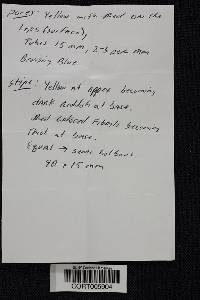 Pores: Yellow with Red on the
Tops (surface),
Tubes 15 mm, 2-3 per mm
Bruising Blue
Stipe: Yellow at apex becoming
dark Reddish at base.
Red colored Fibrils becoming
Thick at base.
Equal → semi bulbous
90 x 15 mm
CORT005904